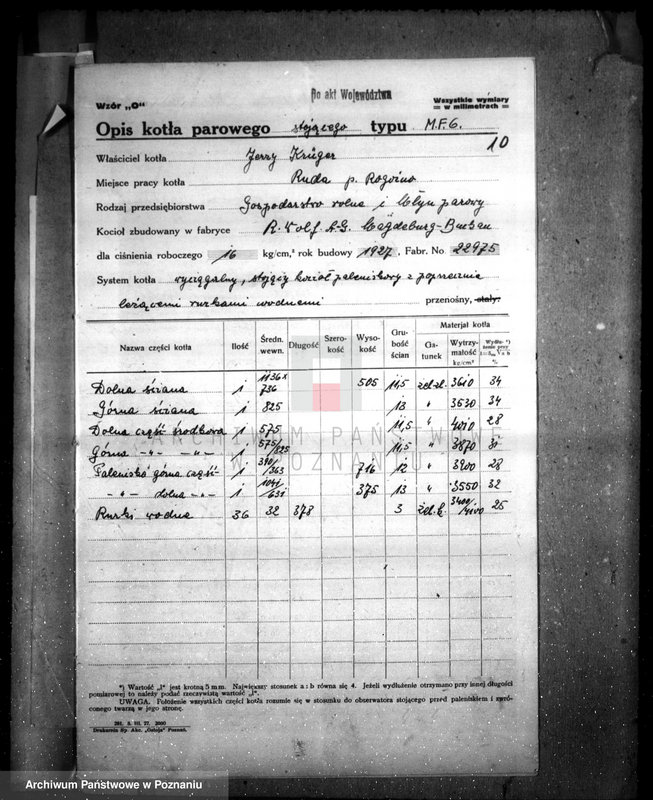 Do akt Województwa
Wzór „O“
Wszystkie wymiary
w milimetrach
Opis kotła parowego stojącego typu M.F.6.
10
Właściciel kotła Jerzy Krüger
Miejsce pracy kotła Ruda p. Rogoźno
Rodzaj przedsiębiorstwa Gospodarstwo rolne i Młyn parowy
Kocioł zbudowany w fabryce R. Wolf A.G. Magdeburg-Buckau
dla ciśnienia roboczego 16 kg/cm,² rok budowy 1927, Fabr. No 22975
System kotła wyciągalny, stojący kocioł paleniskowy z poprzecznie
leżącemi rurkami wodnemi przenośny, stały.
Nazwa części kotła Ilość Średn. wewn. Długość Szerokość Wysokość Grubość ścian Materjał kotła
Gatunek Wytrzymałość kg/cm² Wydłu-*) żenie przy %
Dolna ściana 1 1136 x 736 505 11,5 żel.zl. 3610 34
Górna ściana 1 825 13 " 3530 34
Dolna część środkowa 1 575 11,5 " 4010 28
Górna -"- -"- 1 575/825 11,5 " 3870
Paleniska górna część 1 /363 716 12 " 3900 28
-"- dolna -"- 1 1041/631 375 13 " 3550 32
Rurki wodne 36 32 378 3 3400/4100 25
*) Wartość „l“ jest krotną 5 mm. Największy stosunek a : b równa się 4. Jeżeli wydłużenie otrzymano przy innej długości
pomiarowej to należy podać rzeczywistą wartość „l“.
UWAGA. Położenie wszystkich części kotła rozumie się w stosunku do obserwatora stojącego przed paleniskiem i zwró-
conego twarzą w jego stronę.
281. 8. III. 27. 2000
Drukarnia Sp. Akc. „Ostoja“ Poznań.
ARCHIWUM PAŃSTWOWE
W POZNANIU
Archiwum Państwowe w Poznaniu